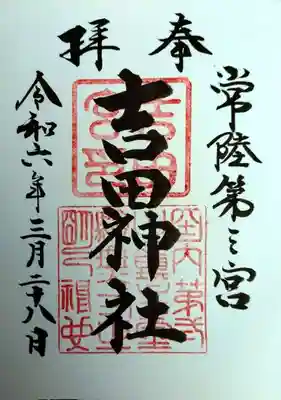 奉拝
常陸第三宮
吉田神社
令和六年三月二十八日